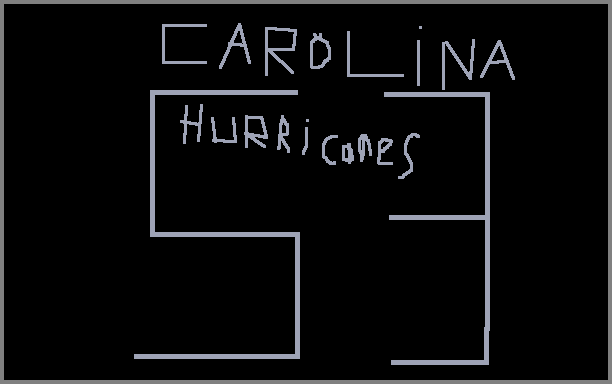 CAROLiNA
HURRicanes
53